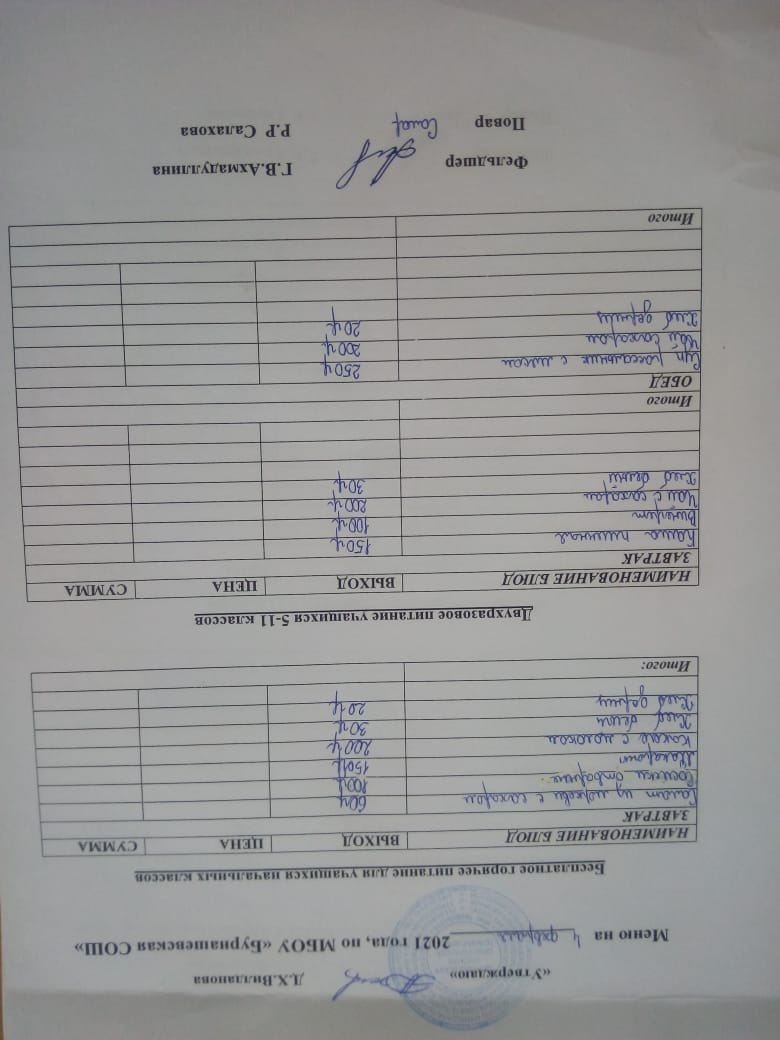 «Утверждаю» Д.Х.Вилданова
Меню на 4 февраля 2021 года, по МБОУ «Бурнашевская СОШ»
Бесплатное горячее питание для учащихся начальных классов
НАИМЕНОВАНИЕ БЛЮД ВЫХОД ЦЕНА СУММА
ЗАВТРАК
Салат из моркови с сахаром 60 г
Сосиски отварные 100 г
Макароны 150 г
Какао с молоком 200 г
Хлеб белый 30 г
Хлеб 20 г
Итого:
Двухразовое питание учащихся 5-11 классов
НАИМЕНОВАНИЕ БЛЮД ВЫХОД ЦЕНА СУММА
ЗАВТРАК
Каша пшенная 150 г
Винегрет 100 г
Чай с сахаром 200 г
Хлеб белый 30 г
Итого
ОБЕД
Суп рассольник с мясом 250 г
Чай сахаром 200 г
Хлеб 20 г
Итого
Фельдшер Г.В.Ахмадуллина
Повар Р.Р Салахова